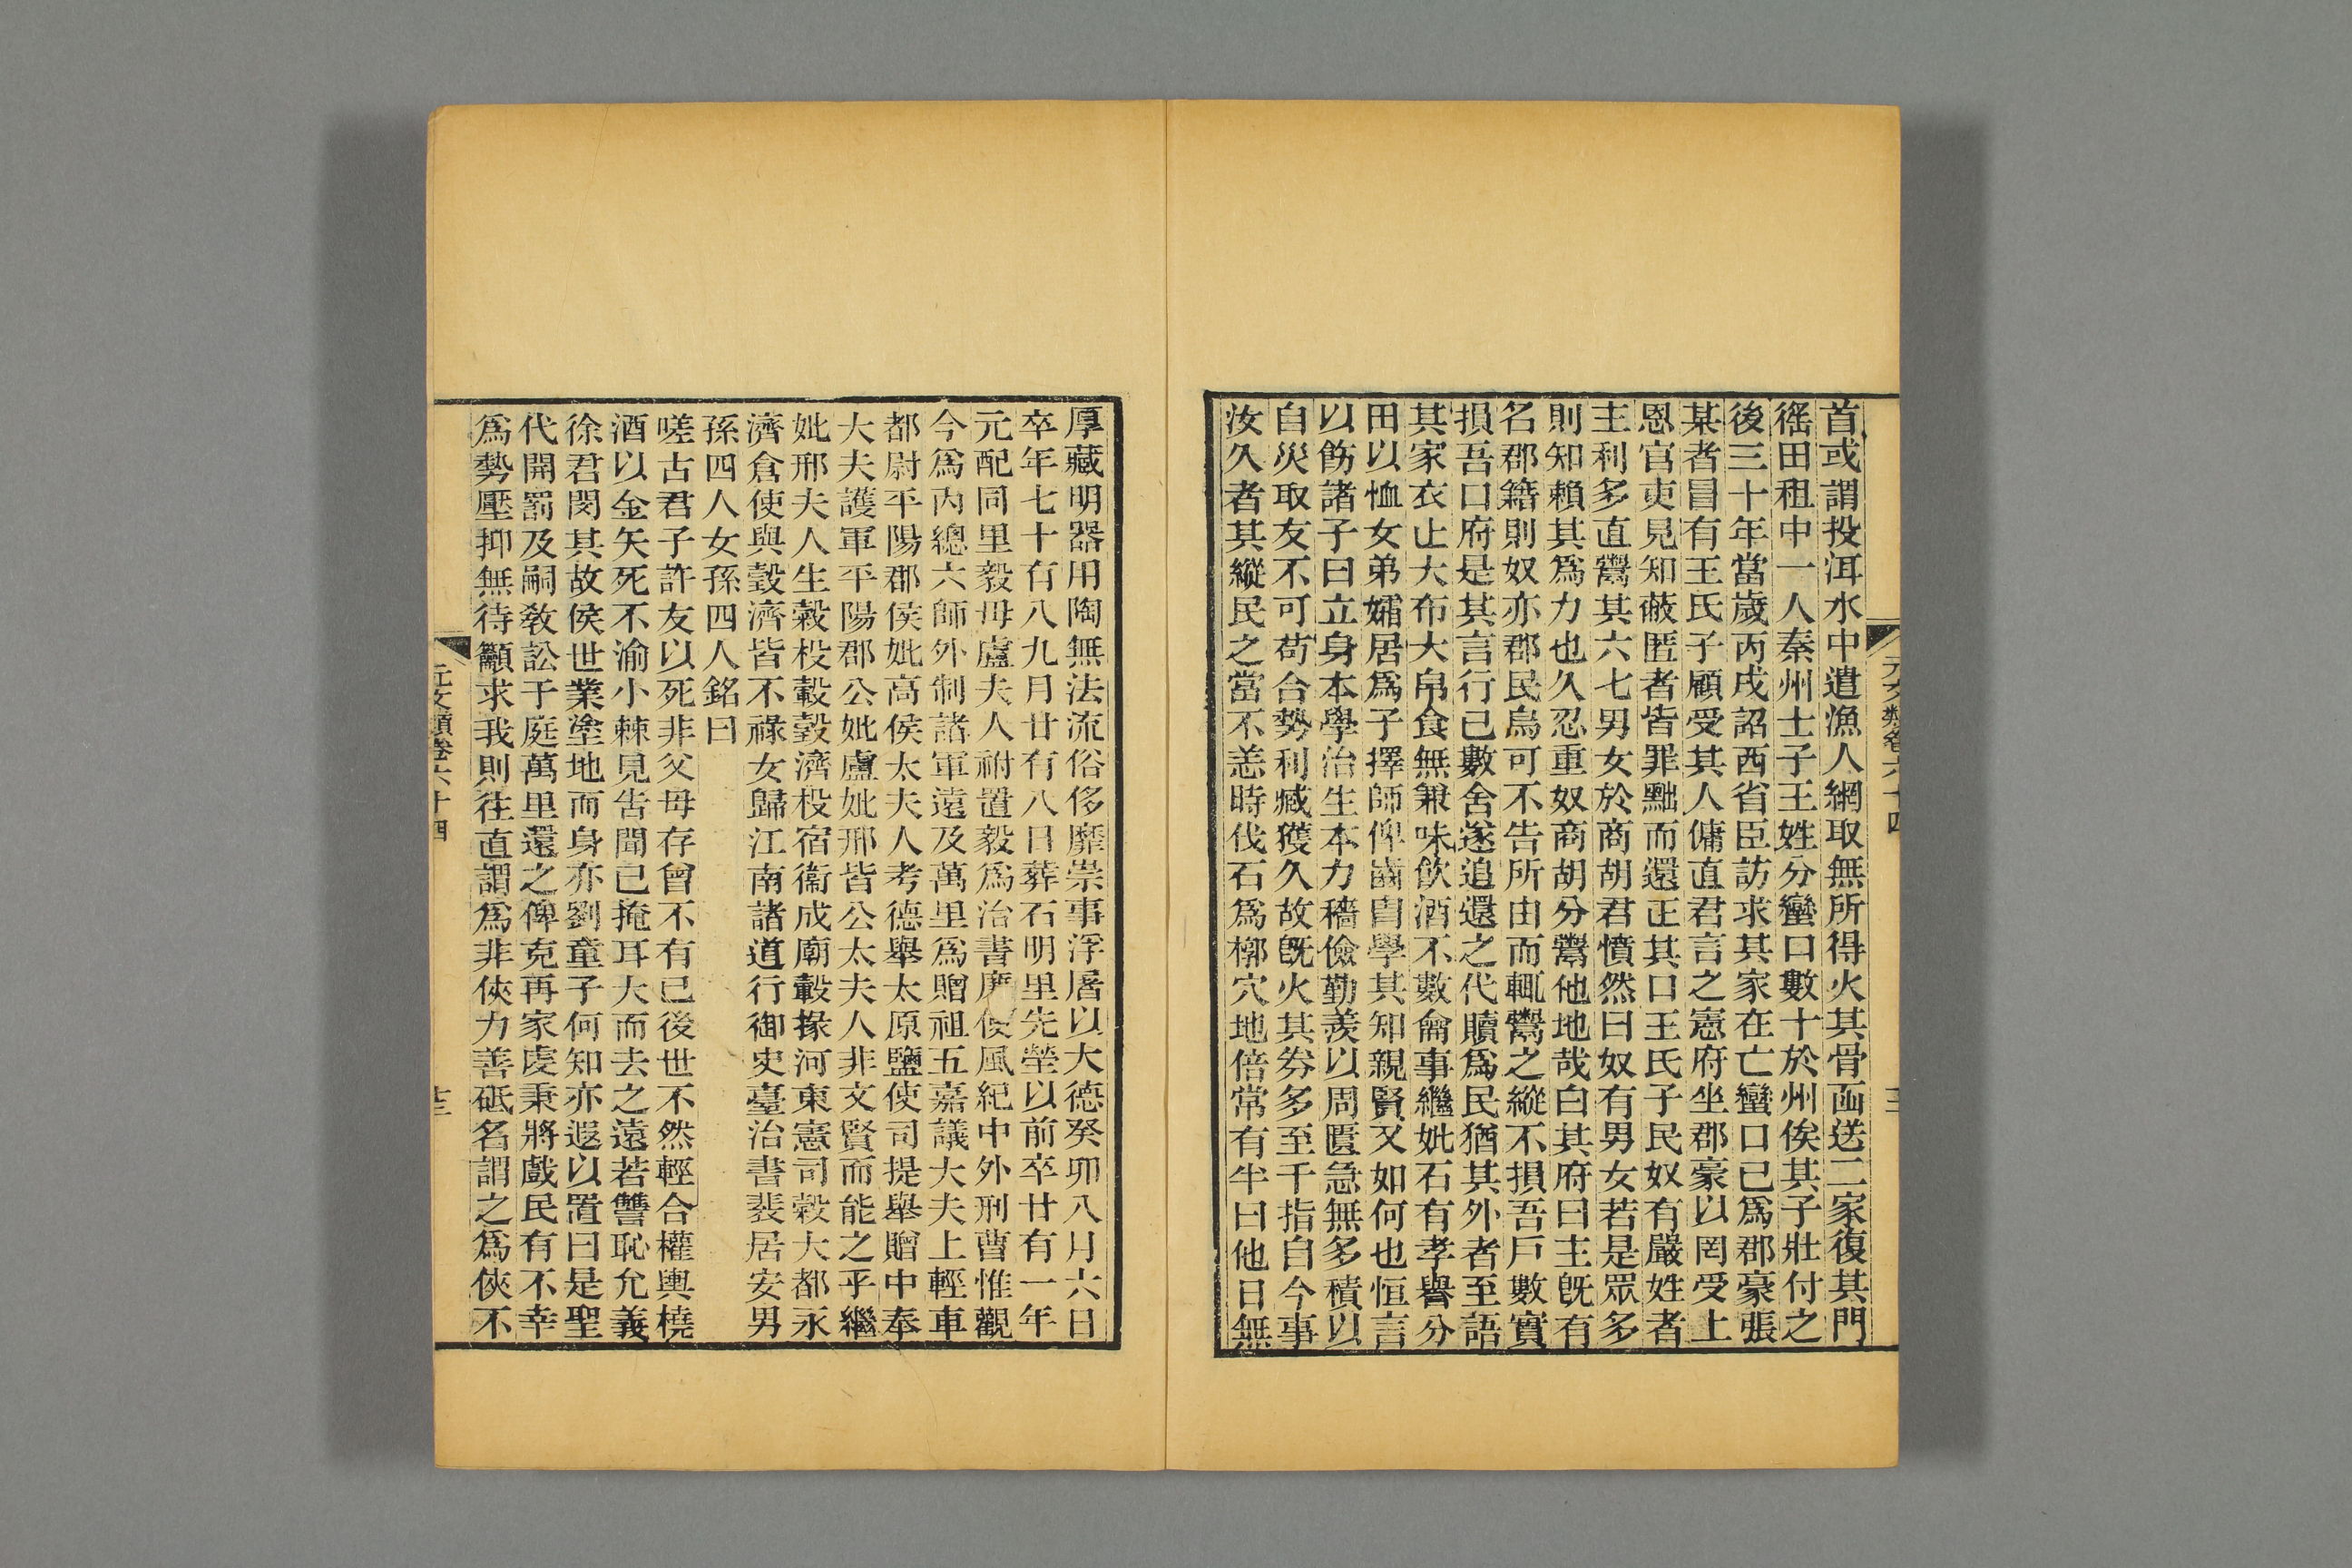 首或謂投洱水中遣漁人網取無所得火其骨函送二家復其門
徭田租中一人秦州士子王姓分蠻口數十於州俟其子壯付之
後三十年當歲丙戌詔西省臣訪求其家在亡蠻口已爲郡豪張
某者冒有王氏子顧受其人傭直君言之憲府坐郡豪以罔受上
恩官吏見知蔽匿者皆罪黜而還正其口王氏子民奴有嚴姓者
主利多直鬻其六七男女於商胡君憤然曰奴有男女若是眾多
則知賴其爲力也久忍重奴商胡分鬻他地哉白其府曰主旣有
名郡籍則奴亦郡民烏可不告所由而輒鬻之縱不損吾戶數實
損吾口府是其言行已數舍遂追還之代贖爲民猶其外者至語
其家衣止大布大帛食無兼味飲酒不數龠事繼妣石有孝譽分
田以恤女弟孀居爲子擇師俾齒胄學其知親賢又如何也恒言
以飭諸子曰立身本學治生本力穡儉勤羨以周匱急無多積以
自災取友不可苟合勢利臧獲久故旣火其券多至千指自今事
汝久者其縱民之當不恙時伐石爲槨穴地倍常有半曰他日無
元文類卷六十四
厚藏明器用陶無法流俗侈靡崇事浮屠以大德癸卯八月六日
卒年七十有八九月廿有八日葬石明里先塋以前卒廿有一年
元配同里毅母盧夫人祔置毅爲治書廉使風紀中外刑曹惟觀
今爲內總六師外制諸軍遠及萬里爲贈祖五嘉議大夫上輕車
都尉平陽郡侯妣高侯太夫人考德舉太原鹽使司提舉贈中奉
大夫護軍平陽郡公妣盧妣邢皆公太夫人非文賢而能之乎繼
妣邢夫人生榖杸轂瑴濟杸宿衞成廟轂掾河東憲司榖大都永
濟倉使與瑴濟皆不祿女歸江南諸道行御史臺治書裴居安男
孫四人女孫四人銘曰
嗟古君子許友以死非父母存曾不有己後世不然輕合權輿橈
酒以金矢死不渝小棘見吿聞已掩耳大而去之遠若讐恥允義
徐君閔其故侯世業塗地而身亦劉童子何知亦遐以置曰是聖
代開罰及嗣敎訟于庭萬里還之俾克再家虔秉將戲民有不幸
爲勢壓抑無待籲求我則往直謂爲非俠力善砥名謂之爲俠不
元文類卷六十四
十三